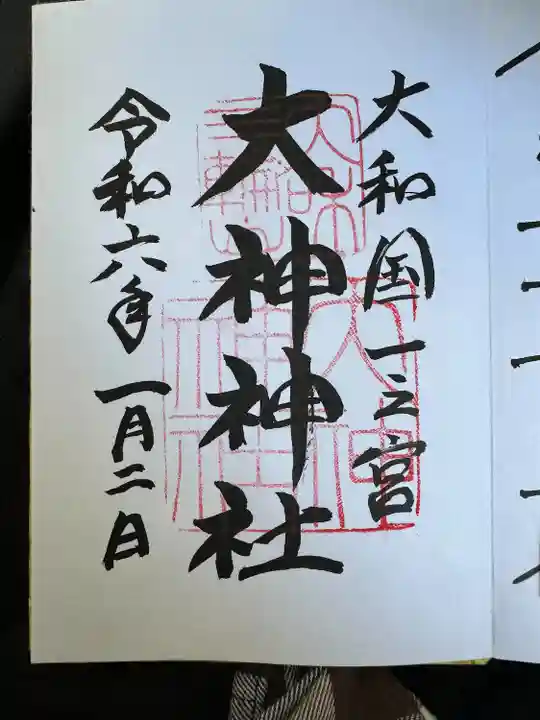 大和国一之宮
大神神社
令和六年一月二日
大神
神社